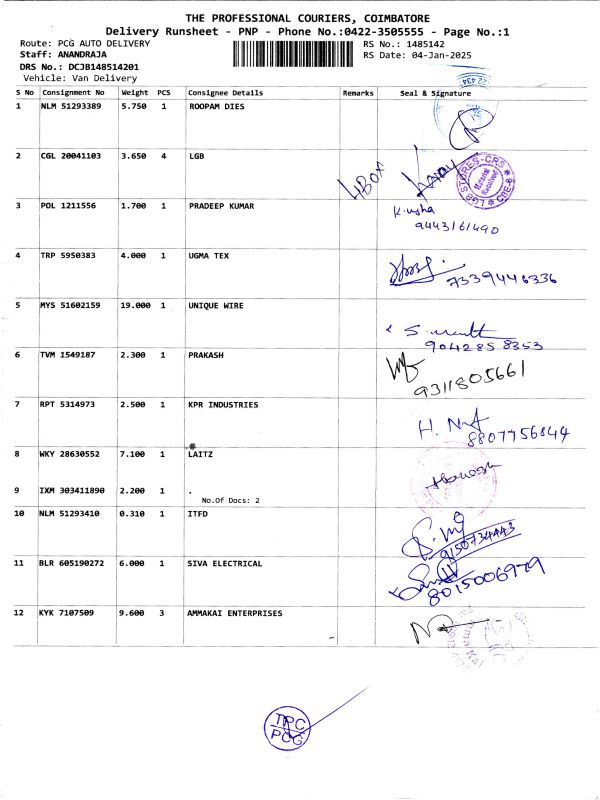 THE PROFESSIONAL COURIERS, COIMBATORE
Delivery Runsheet - PNP - Phone No.:0422-3505555 - Page No.:1
Route: PCG AUTO DELIVERY RS No.: 1485142
Staff: ANANDRAJA RS Date: 04-Jan-2025
DRS No.: DCJB148514201
Vehicle: Van Delivery
S No Consignment No Weight PCS Consignee Details Remarks Seal & Signature
1 NLM 51293389 5.750 1 ROOPAM DIES
2 CGL 20041103 3.650 4 LGB 4 BOX
LGB STORES-CRS
Material Received
CBE-6
3 POL 1211556 1.700 1 PRADEEP KUMAR K.usha
9443161490
4 TRP 5950383 4.000 1 UGMA TEX
7339446336
5 MYS 51602159 19.000 1 UNIQUE WIRE
9042858353
6 TVM 1549187 2.300 1 PRAKASH
9311805661
7 RPT 5314973 2.500 1 KPR INDUSTRIES
8807756844
8 WKY 28630552 7.100 1 LAITZ
9 IXM 303411890 2.200 1 .
No.Of Docs: 2
10 NLM 51293410 0.310 1 ITFD
9150734443
11 BLR 605190272 6.000 1 SIVA ELECTRICAL
8015006979
12 KYK 7107509 9.600 3 AMMAKAI ENTERPRISES
TPC
PCG